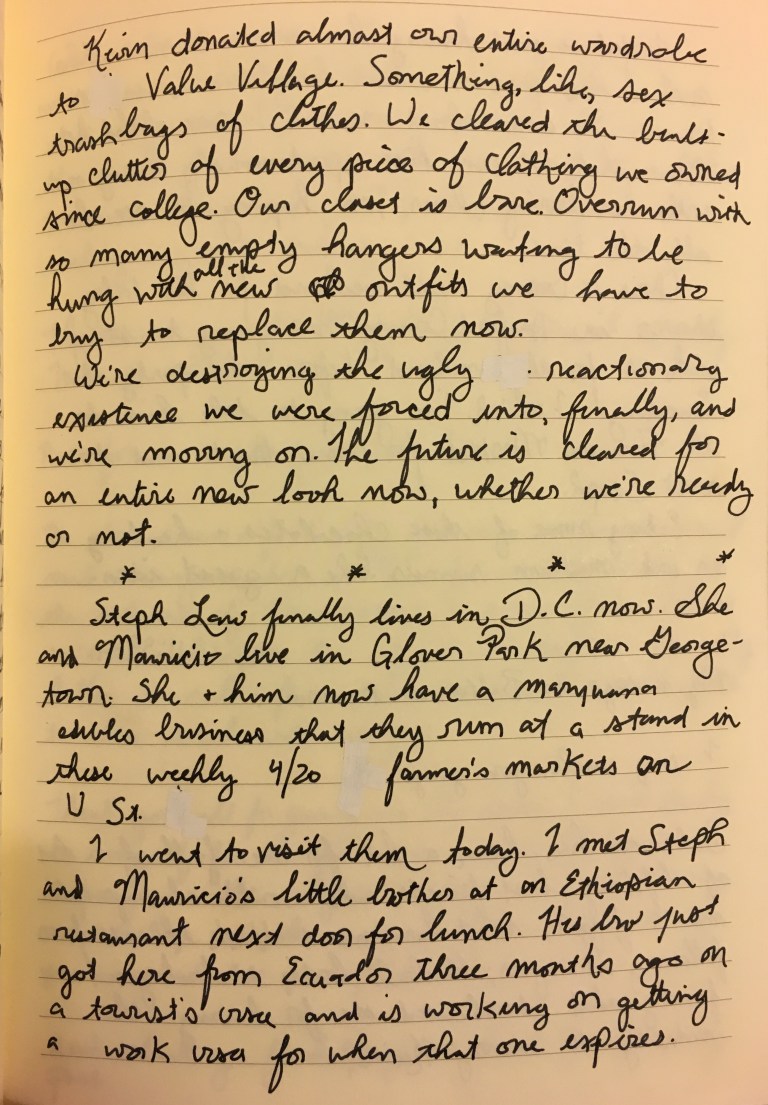 Kevin donated almost our entire wardrobe
to Value Village. Something, like, sex
trashbags of clothes. We cleared the built-
up clutter of every piece of clothing we owned
since college. Our closet is bare. Overrun with
so many empty hangers waiting to be
hung with all the new outfits we have to
buy to replace them now.
We're destroying the ugly reactionary
existence we were forced into, finally, and
we're moving on. The future is cleared for
an entire new look now, whether we're ready
or not.
* * * *
Steph Law finally lives in D.C. now. She
and Mauricio live in Glover Park near George-
town. She + him now have a maryuana
edibles business that they run at a stand in
these weekly 4/20 farmer's markets on
U St.
I went to visit them today. I met Steph
and Mauricio's little brother at an Ethiopian
restaurant next door for lunch. His bro just
got here from Ecuador three months ago on
a tourist's visa and is working on getting
a work visa for when that one expires.